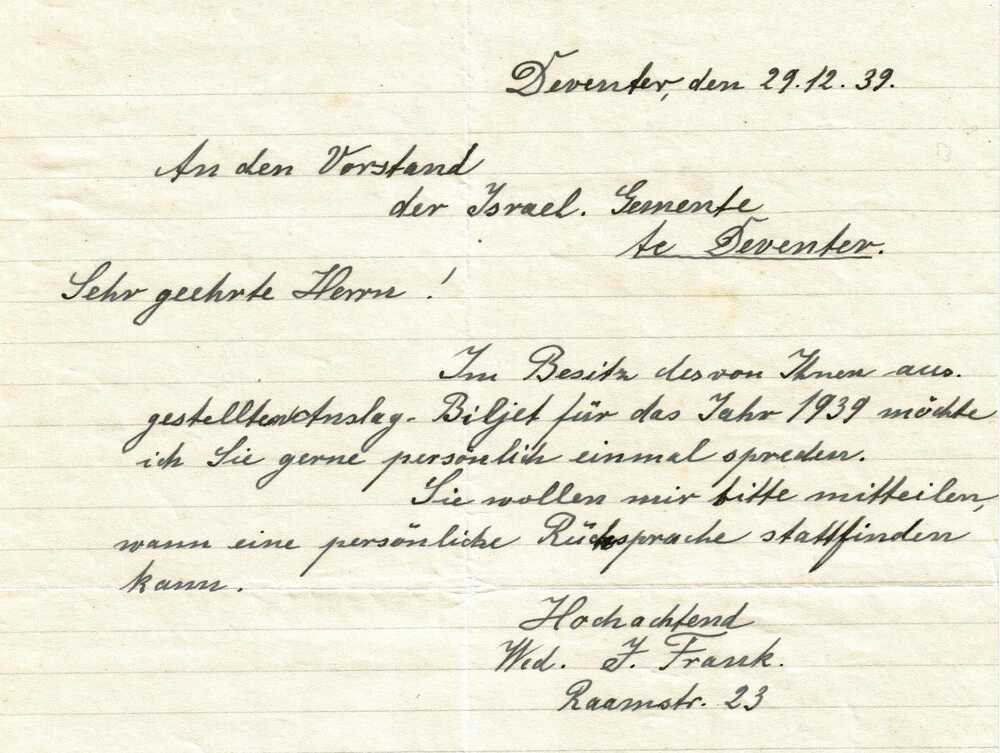 Deventer, den 29.12.39.
An den Vorstand
der Israel. Gemente
te Deventer.
Sehr geehrte Herrn!
Im Besitz des von Ihnen aus-
gestellten Anslag-Biljet für das Jahr 1939 möchte
ich Sie gerne persönlich einmal sprechen.
Sie wollen mir bitte mitteilen,
wann eine persönliche Rücksprache stattfinden
kann.
Hochachtend
Wed. J. Frank.
Raamstr. 23